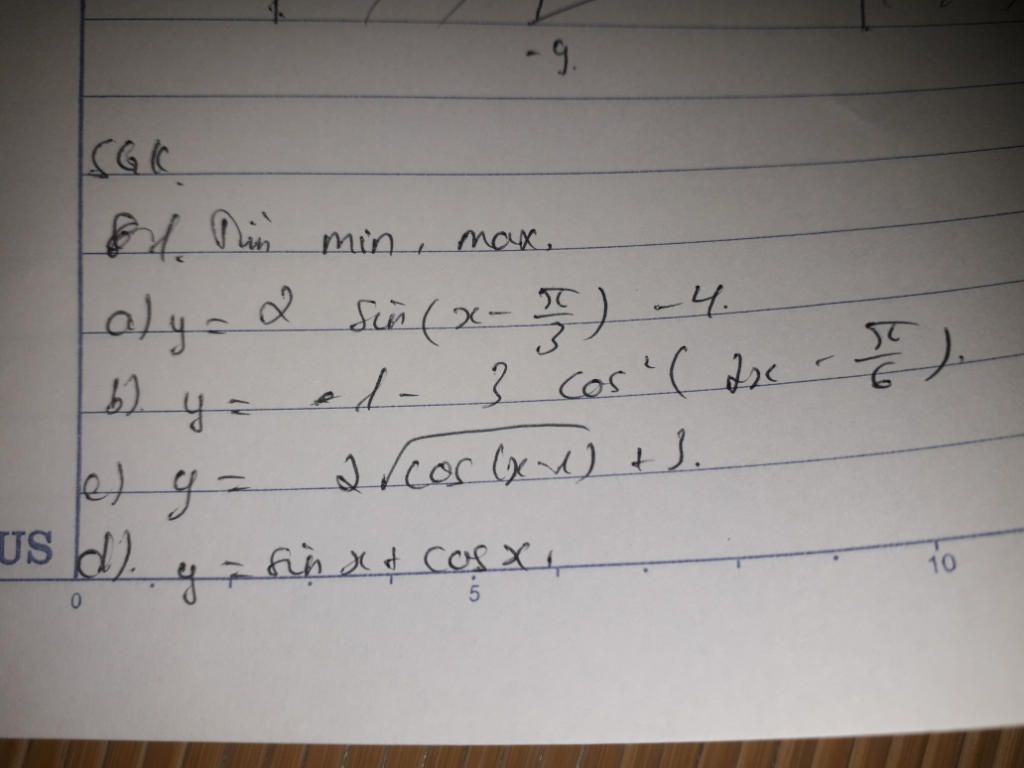 -9.
SGK.
1. Tìm min, max.
a) y = 2 sin(x - π/3) - 4.
b). y = -1 - 3 cos²(2x - π/6).
c) y = 2√cos(x-1) + 3.
US d). y = sin x + cos x.
0 5 10